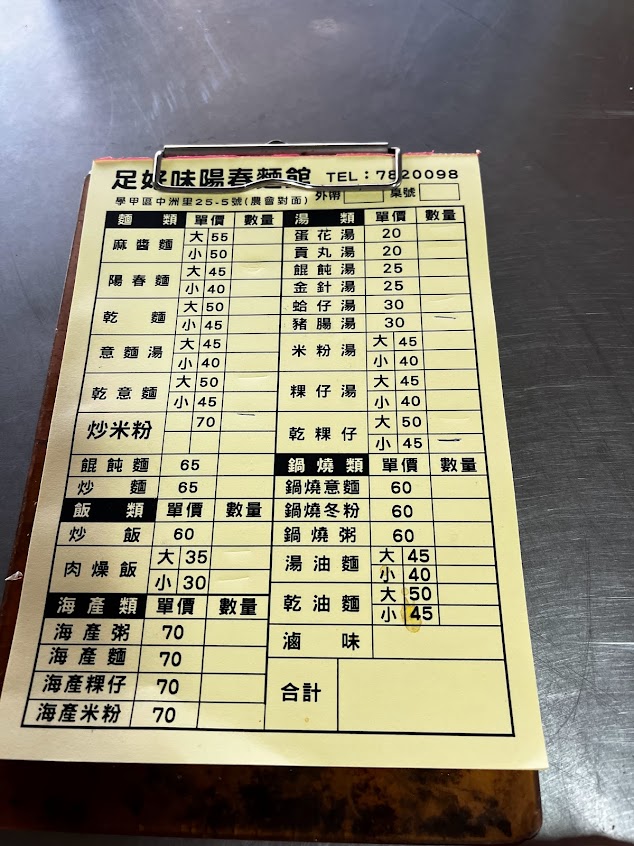 足好味陽春麵館 TEL：7820098
學甲區中洲里25-5號(農會對面) 外帶 桌號
麵類 單價 數量
麻醬麵 大 55
小 50
陽春麵 大 45
小 40
乾麵 大 50
小 45
意麵湯 大 45
小 40
乾意麵 大 50
小 45
炒米粉 70
餛飩麵 65
炒麵 65
飯類 單價 數量
炒飯 60
肉燥飯 大 35
小 30
海產類 單價 數量
海產粥 70
海產麵 70
海產粿仔 70
海產米粉 70
湯類 單價 數量
蛋花湯 20
貢丸湯 20
餛飩湯 25
金針湯 25
蛤仔湯 30
豬腸湯 30
米粉湯 大 45
小 40
粿仔湯 大 45
小 40
乾粿仔 大 50
小 45
鍋燒類 單價 數量
鍋燒意麵 60
鍋燒冬粉 60
鍋燒粥 60
湯油麵 大 45
小 40
乾油麵 大 50
小 45
滷味
合計